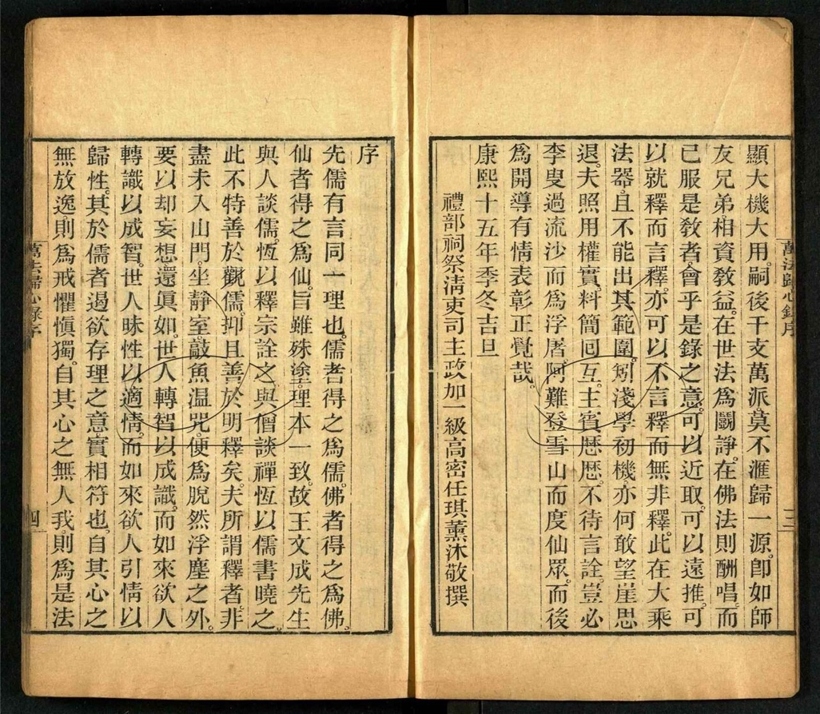 顯大機大用。嗣後千支萬派莫不滙歸一源。卽如師
友兄弟。相資敎益。在世法爲鬭諍。在佛法則酬唱。而
已服是敎者。會乎是錄之意。可以近取。可以遠推。可
以就釋而言釋。亦可以不言釋而無非釋。此在大乘
法器。且不能出其範圍。矧淺學初機。亦何敢望崖思
退。夫照用權實。料簡回互。主賓歷歷。不待言詮。豈必
李叟過流沙而爲浮屠。阿難登雪山而度仙眾。而後
爲開導有情。表彰正覺哉。
康熙十五年季冬吉旦
禮部祠祭淸吏司主政加一級高密任琪薰沐敬撰
萬法歸心錄序
三
序
先儒有言同一理也。儒者得之爲儒。佛者得之爲佛。
仙者得之爲仙。旨雖殊塗。理本一致。故王文成先生
與人談儒。恆以釋宗詮之。與僧談禪。恆以儒書曉之。
此不特善於觀儒。抑且善於明釋矣。夫所謂釋者。非
盡未入山門。坐靜室。敲魚温咒。便爲脫然浮塵之外。
要以却妄想。還眞如。世人轉智以成識。而如來欲人
轉識以成智。世人昧性以適情。而如來欲人引情以
歸性。其於儒者遏欲存理之意。實相符也。自其心之
無放逸則爲戒懼愼獨。自其心之無人我則爲是法
萬法歸心錄序
四